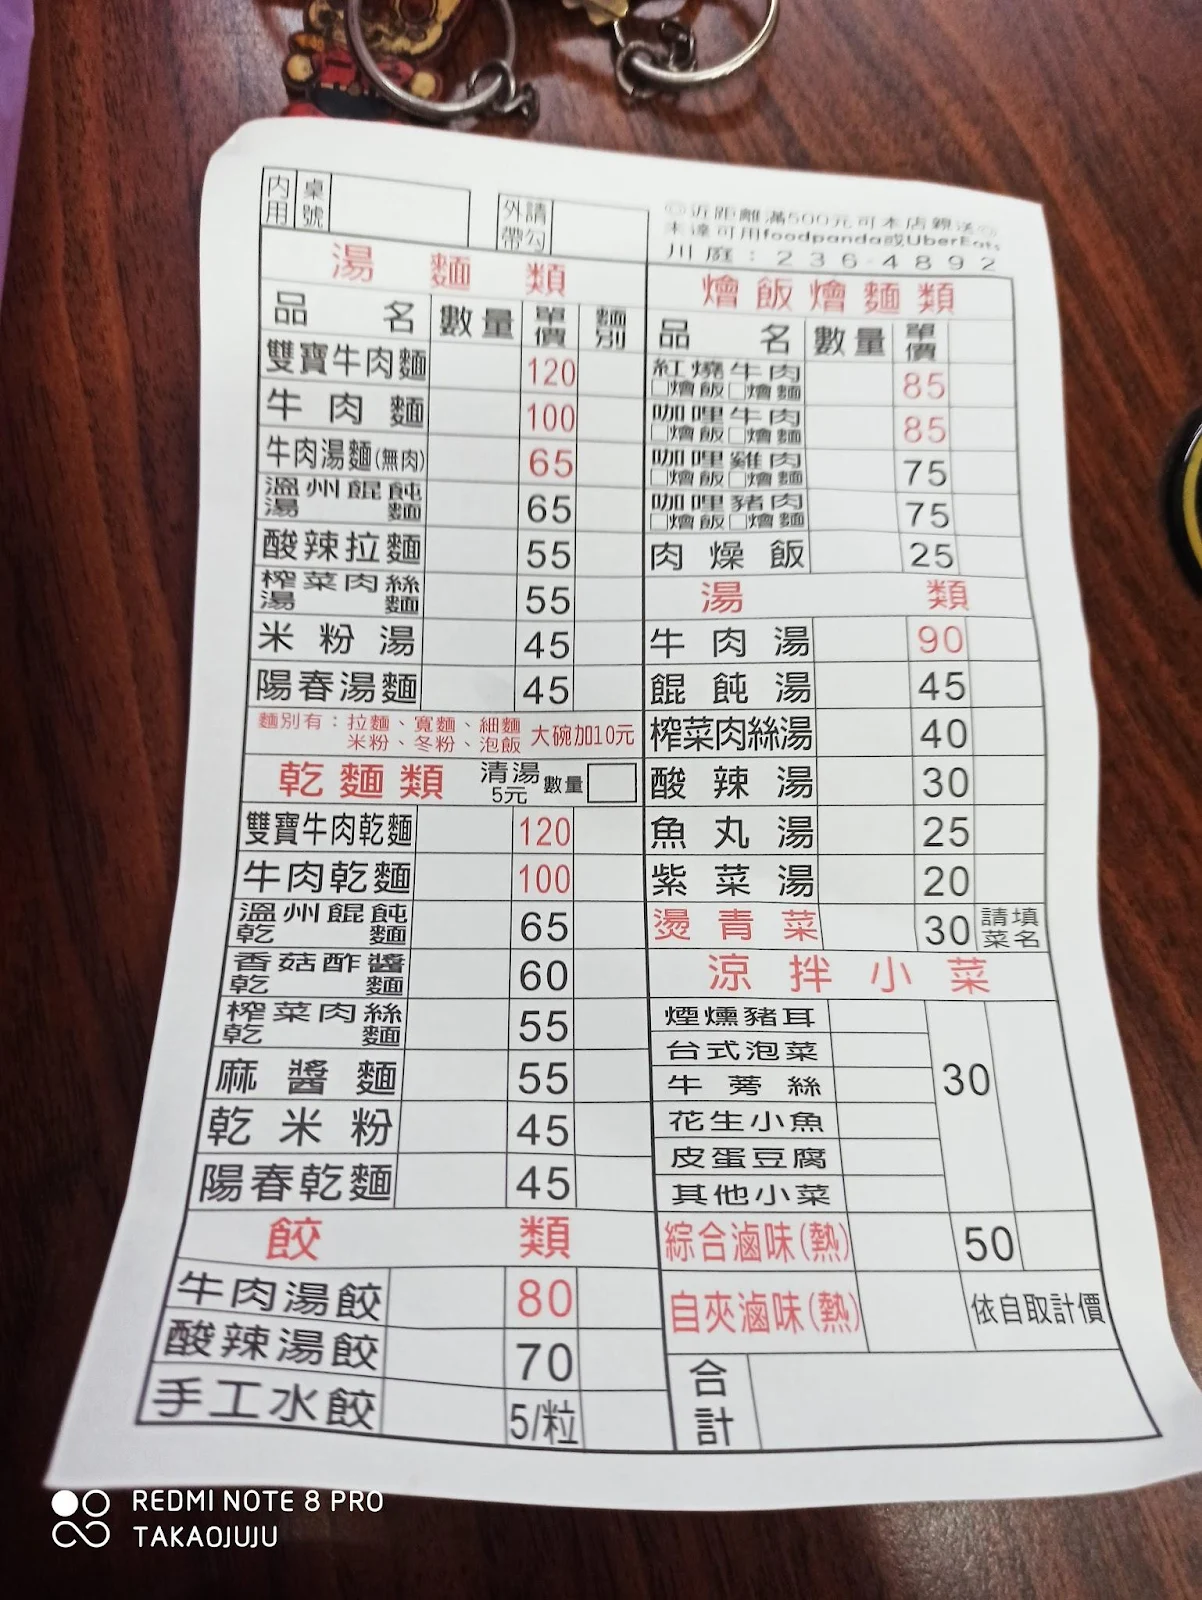 內用 桌號
外帶 請勾
◎近距離滿500元可本店親送◎
未達可用foodpanda或UberEats
川庭：236-4892
湯麵類
品名 數量 單價 麵別
雙寶牛肉麵 120
牛肉麵 100
牛肉湯麵(無肉) 65
溫州餛飩湯麵 65
酸辣拉麵 55
榨菜肉絲湯麵 55
米粉湯 45
陽春湯麵 45
麵別有：拉麵、寬麵、細麵
米粉、冬粉、泡飯 大碗加10元
乾麵類 清湯5元 數量
雙寶牛肉乾麵 120
牛肉乾麵 100
溫州餛飩乾麵 65
香菇酢醬乾麵 60
榨菜肉絲乾麵 55
麻醬麵 55
乾米粉 45
陽春乾麵 45
餃類
牛肉湯餃 80
酸辣湯餃 70
手工水餃 5/粒
燴飯燴麵類
品名 數量 單價
紅燒牛肉 □燴飯□燴麵 85
咖哩牛肉 □燴飯□燴麵 85
咖哩雞肉 □燴飯□燴麵 75
咖哩豬肉 □燴飯□燴麵 75
肉燥飯 25
湯類
牛肉湯 90
餛飩湯 45
榨菜肉絲湯 40
酸辣湯 30
魚丸湯 25
紫菜湯 20
燙青菜 30 請填菜名
涼拌小菜
煙燻豬耳
台式泡菜
牛蒡絲 30
花生小魚
皮蛋豆腐
其他小菜
綜合滷味(熱) 50
自夾滷味(熱) 依自取計價
合計
REDMI NOTE 8 PRO
TAKAOJUJU